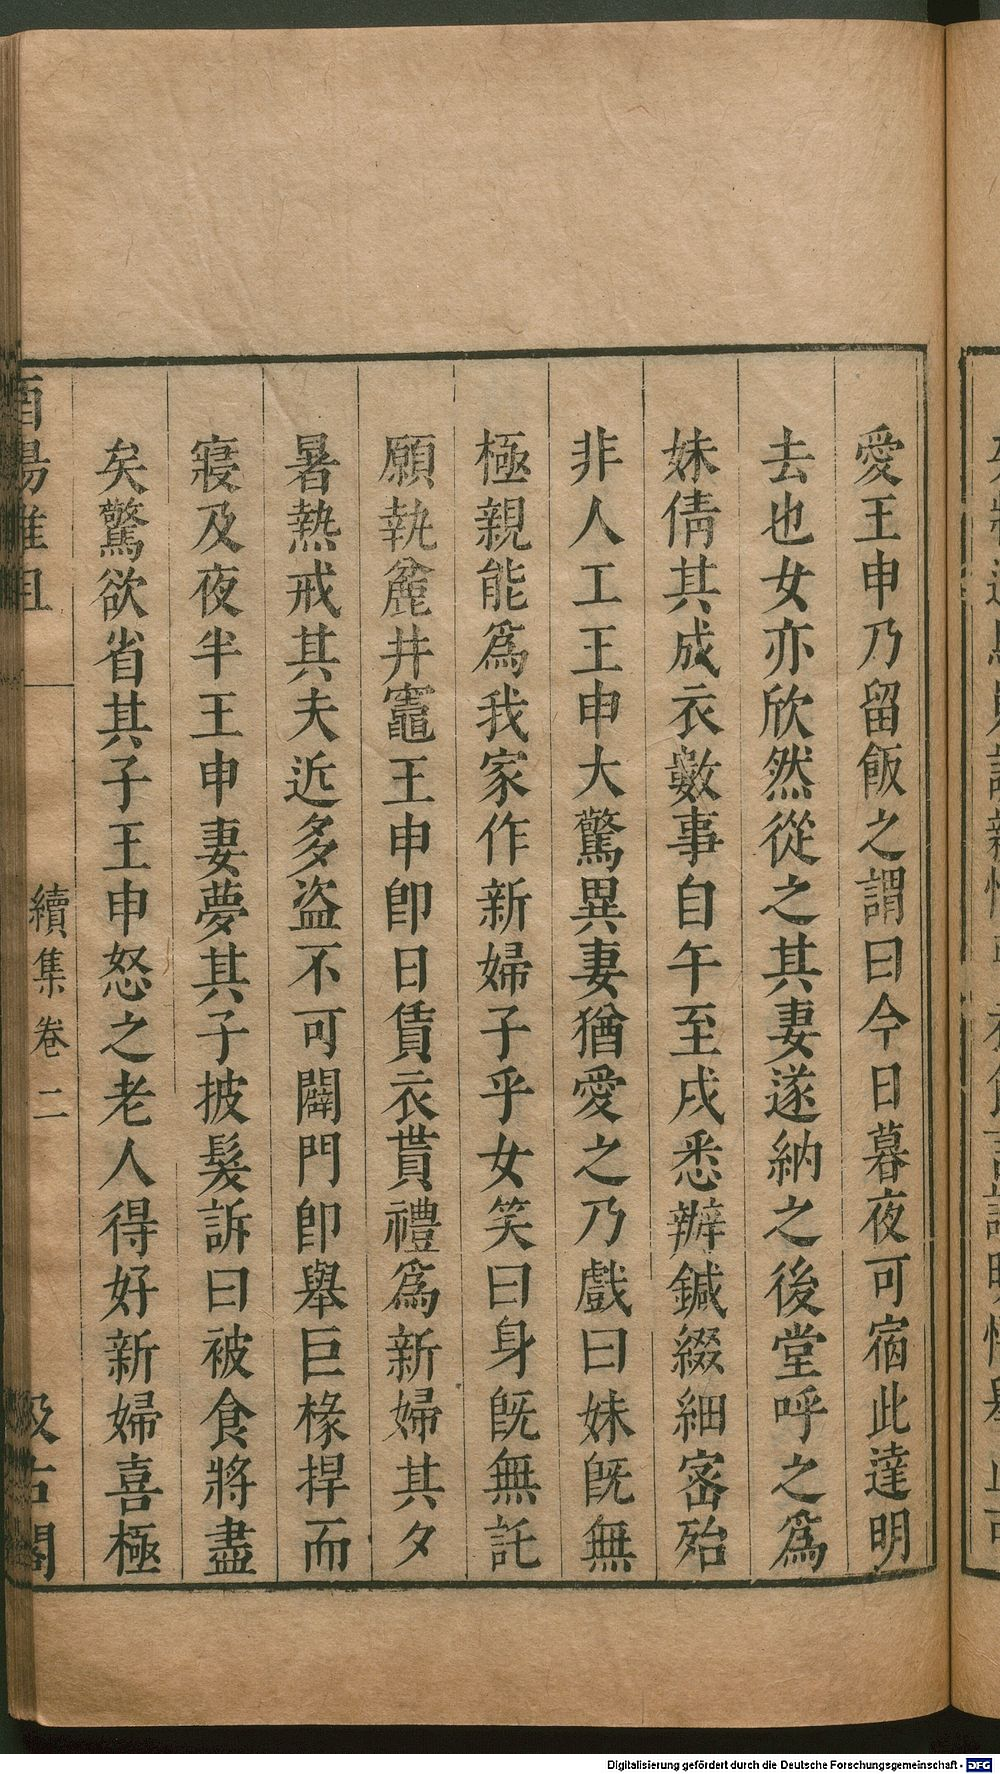 愛王申乃留飯之謂曰今日暮夜可宿此達明
去也女亦欣然從之其妻遂納之後堂呼之爲
妹倩其成衣數事自午至戌悉辦鍼綴細密殆
非人工王申大驚異妻猶愛之乃戲曰妹旣無
極親能爲我家作新婦子乎女笑曰身旣無託
願執麄井竈王申卽日賃衣貰禮爲新婦其夕
暑熱戒其夫近多盜不可闢門卽舉巨椽捍而
寢及夜半王申妻夢其子披髮訴曰被食將盡
矣驚欲省其子王申怒之老人得好新婦喜極
酉陽雜俎
續集卷二
汲古閣
Digitalisierung gefördert durch die Deutsche Forschungsgemeinschaft - DFG